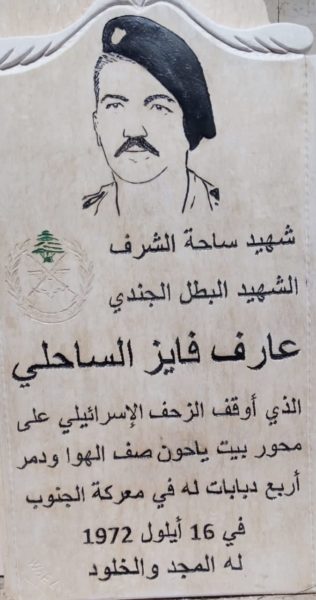 شهيد ساحة الشرف
الشهيد البطل الجندي
عارف فايز الساحلي
الذي أوقف الزحف الإسرائيلي على
محور بيت ياحون صف الهوا ودمر
أربع دبابات له في معركة الجنوب
في 16 أيلول 1972
له المجد والخلود